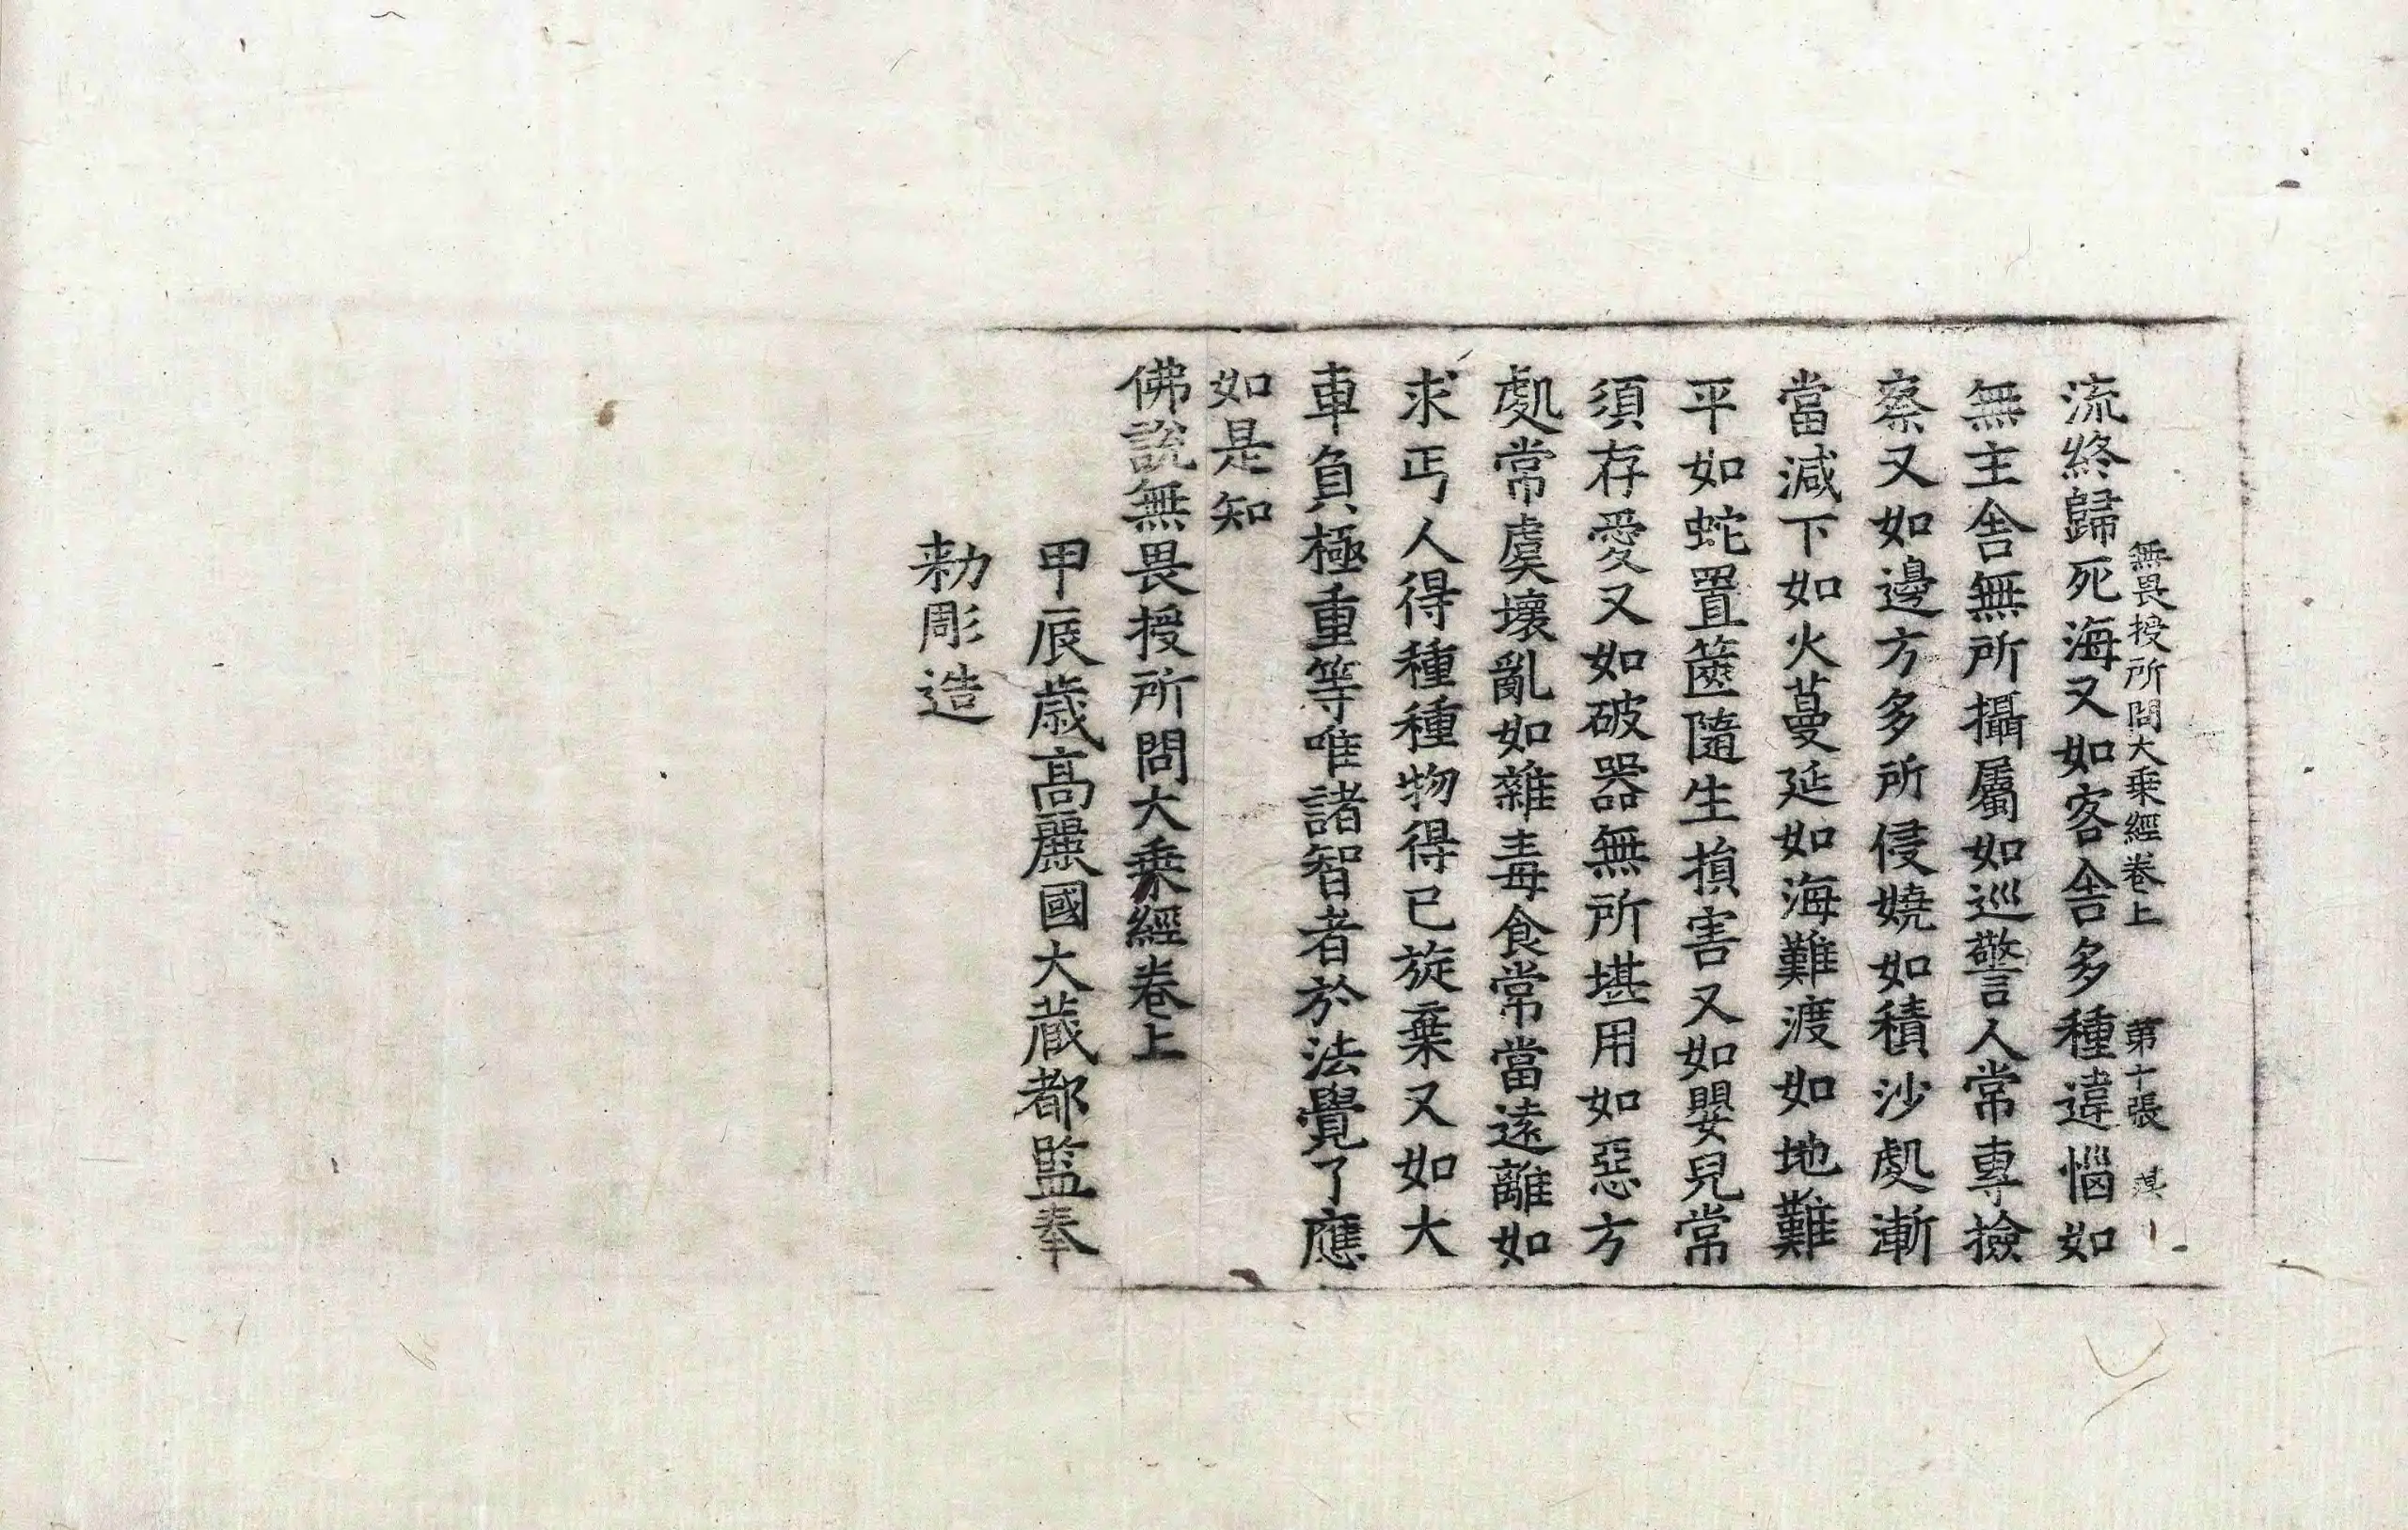 無畏授所問大乗經卷上 第十張
流終歸死海又如客舎多種違惱如
無主舎無所攝屬如巡警人常專撿
察又如邊方多所侵嬈如積沙處漸
當減下如火蔓延如海難渡如地難
平如蛇置篋隨生損害又如嬰兒常
須存愛又如破器無所堪用如惡方
處常虞壞亂如雜毒食常當遠離如
求丐人得種種物得已旋棄又如大
車負極重等唯諸智者於法覺了應
如是知
佛說無畏授所問大乗經卷上
甲辰歲高麗國大藏都監奉
勑彫造